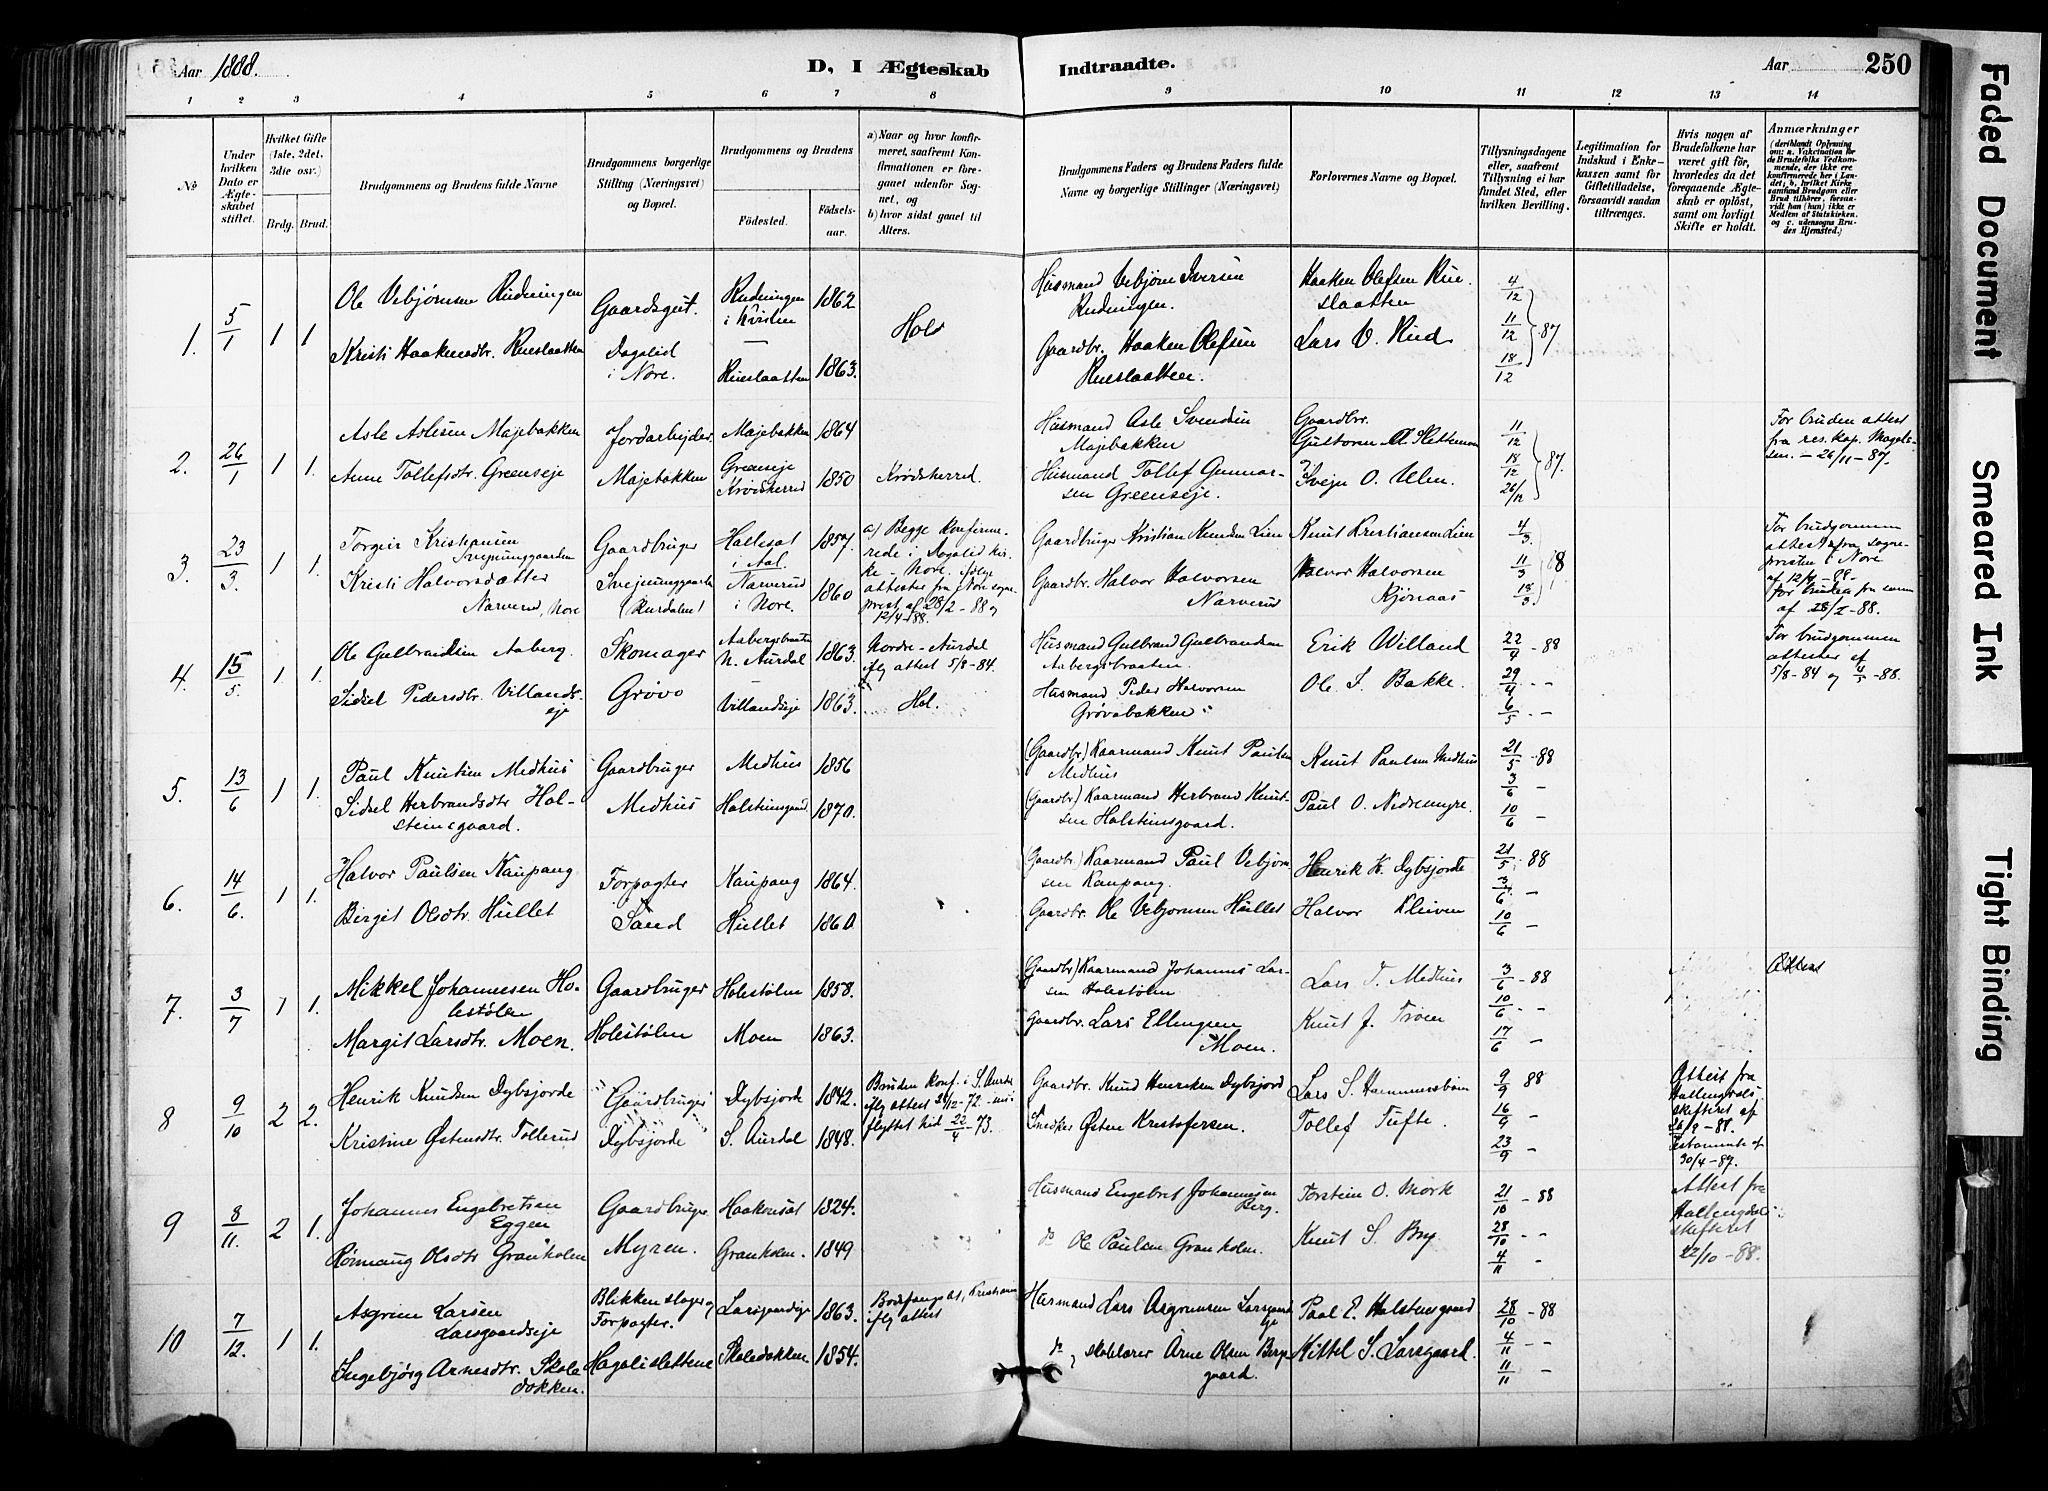 Aar 1888.
D, I Ægteskab Indtraadte.
Aar 250
1 2 3 4 5 6 7 8 9 10 11 12 13 14
No
Under hvilken Dato er Ægteskabet stiftet.
Hvilket Gifte (1ste, 2det, 3die osv.)
Brdg. Brud.
Brudgommens og Brudens fulde Navne
Brudgommens borgerlige Stilling (Næringsvei) og Bopæl.
Brudgommens og Brudens
Fødested. Fødselsaar.
a) Naar og hvor konfirmeret, saafremt Konfirmationen er foregaaet udenfor Sognet, og
b) hvor sidst gaaet til Alters.
Brudgommens Faders og Brudens Faders fulde Navne og borgerlige Stillinger (Næringsvei)
Forlovernes Navne og Bopæl.
Tillysningsdagene eller, saafremt Tillysning ei har fundet Sted, efter hvilken Bevilling.
Legitimation for Indskud i Enkekassen samt for Giftetilladelse, forsaavidt saadan tiltrænges.
Hvis nogen af Brudefolkene har været gift før, hvorledes da det foregaaende Ægteskab er opløst, samt om lovligt Skifte er holdt.
Anmærkninger
(deriblandt Oplysning om: a. Vakcination for de Brudefolks Vedkommende, der ikke ere konfirmerede her i Landet; b. hvilket Kirkesamfund Brudgom eller Brud tilhører, forsaavidt han (hun) ikke er Medlem af Statskirken, og c. udensogns Brudes Hjemsted.)
1. 5/1 1 1
Ole Vebjørnsen Rudningen
Gaardsgut. Rudningen 1862
Husmand Vebjørn Iversen
Rudningen
Haaken Olefsen Rueslaatten
4/12
Hol
Kristi Haakensdtr. Rueslaatten
Dagalid i Nore. Rueslaatten 1863.
Gaardbr. Haaken Olefsen
Rueslaatten.
Lars O. Rud
11/12 18/12 87
2. 26/1 1 1.
Asle Aslesen Majebakken
Jordarbejder Majebakken 1864
Husmand Asle Svendsen
Majebakken
Gaardbr.
11/12
For bruden attest
fra res. kap. Magelssen. – 26/11 – 87.
Anne Tollefsdtr. Greenseje
Majebakken Greenseje Krødsherred 1850 Krødsherred.
Husmand Tollef Gunnarsen Greenseje.
Svejn O. Ulen.
18/12 26/12 87.
3. 23/3 1 1.
Torgeir Kristiansen
Svejnunggaarden
Gaardbruger Hallesat i Aal. 1857.
a) Begge konfirmerede i Dagalid kirke – Nore, ifølge attester fra Nore sognprest af 28/2 – 88 og 12/4 – 88.
Gaardbruger Kristian Knudsen Lien
Knut Kristiansen Lien
4/3
Kristi Halvorsdatter
Narverud, Nore
Narverud i Nore. 1860
Gaardbr. Halvor Halvorsen
Narverud
Halvor Halvorsen
Kjønaas
11/3 18/3 88
For brudgommen
attest fra sognepresten i Nore
af 12/4 – 88.
for bruden fra samme
af 28/2 – 88.
4. 15/5 1 1.
Ole Gulbrandsen Aaberg.
Skomager Aabergsbraaten N. Aurdal 1863.
Nordre-Aurdal
iflg attest 5/8 – 84.
Husmand Gulbrand Gulbrandsen
Aabergsbraaten.
Erik Willand
22/4 – 88
For brudgommen
attester af
5/8 – 84 og 4/5 – 88.
Sidsel Pedersdtr. Villandseje
Grøvo Villandseje 1863. Hol.
Husmand Peder Halvorsen
Grøvabakken
Ole S. Bakke.
29/4 6/5
5. 13/6 1 1.
Paul Knutsen Medhus
Gaardbruger Medhus 1856
(Gaardbr.) Kaarmand Knut Paulsen
Medhus
Knut Paulsen Medhus
21/5 – 88
Sidsel Herbrandsdtr Holsteinsgaard.
Medhus Holsteinsgaard 1870.
(Gaardbr.) Kaarmand Herbrand Knutsen Holsteinsgaard.
Paul O. Nedremyre.
3/6 10/6
6. 14/6. 1 1.
Halvor Paulsen Kaupang
Forpagter Kaupang 1864.
(Gaardbr.) Kaarmand Paul Vebjørnsen Kaupang.
Henrik K. Dybsjorde
21/5 – 88
Birgit Olsdtr. Hullet
Sand Hullet 1860.
Gaardbr. Ole Vebjørnsen Hullet
Halvor Kleiven
3/6 10/6
7. 3/7 1 1.
Mikkel Johannesen Holestølen
Gaardbruger Holestølen 1858.
(Gaardbr.) Kaarmand Johannes Larsen Holestølen
Lars T. Medhus
3/6 – 88
Attest
Margit Larsdtr. Moen.
Holestølen Moen 1863.
Gaardbr. Lars Ellingsen
Moen.
Knut J. Troen
10/6 17/6
8 9/10 2 2.
Henrik Knudsen Dybsjorde
Gaardbruger Dybsjorde 1842.
Bruden konf. i S. Aurdal
Gaardbr. Knud Henriksen Dybsjord
Lars S. Hammersbøen
9/9 88
Attest fra
Hallingdals
skifteret af
Kristine Østensdtr. Tollerud
Dybsjorde S. Aurdal 1848.
flyttet hid 22/4 – 73.
Snedker Østen Kristofersen.
Tollef Tufte.
16/9 23/9
30/4 – 87.
9 8/11. 2 1.
Johannes Engebretsen
Eggen
Gaardbruger Haakonsat 1824.
Husmand Engebret Johannesen
Berg.
Torstein O. Mork
21/10 – 88
Attest fra
Hallingdals
skifteret
22/10 – 88.
Rønnaug Olsdtr Granholm
Myren. Granholm. 1849
do Ole Paulsen Granholm.
Knut S. Bry
28/10 4/11
10 7/12. 1 1.
Asgrim Larsen
Larsgaardseje
Blikkenslager og
Forpagter.
Larsgaardseje 1863.
Bodsfængslet, Kristiania
iflg attest
Husmand Lars Asgrimsen Larsgaardseje
Paal E. Holsteinsgaard
28/10 – 88
Ingebjørg Arnesdtr. Skoledokken.
Hagalislettene Skoledokken 1854.
do og skolelærer Arne Olsen Berggaard.
Kittel S. Larsgaard.
4/11 11/11
Faded Document
Smeared Ink
Tight Binding